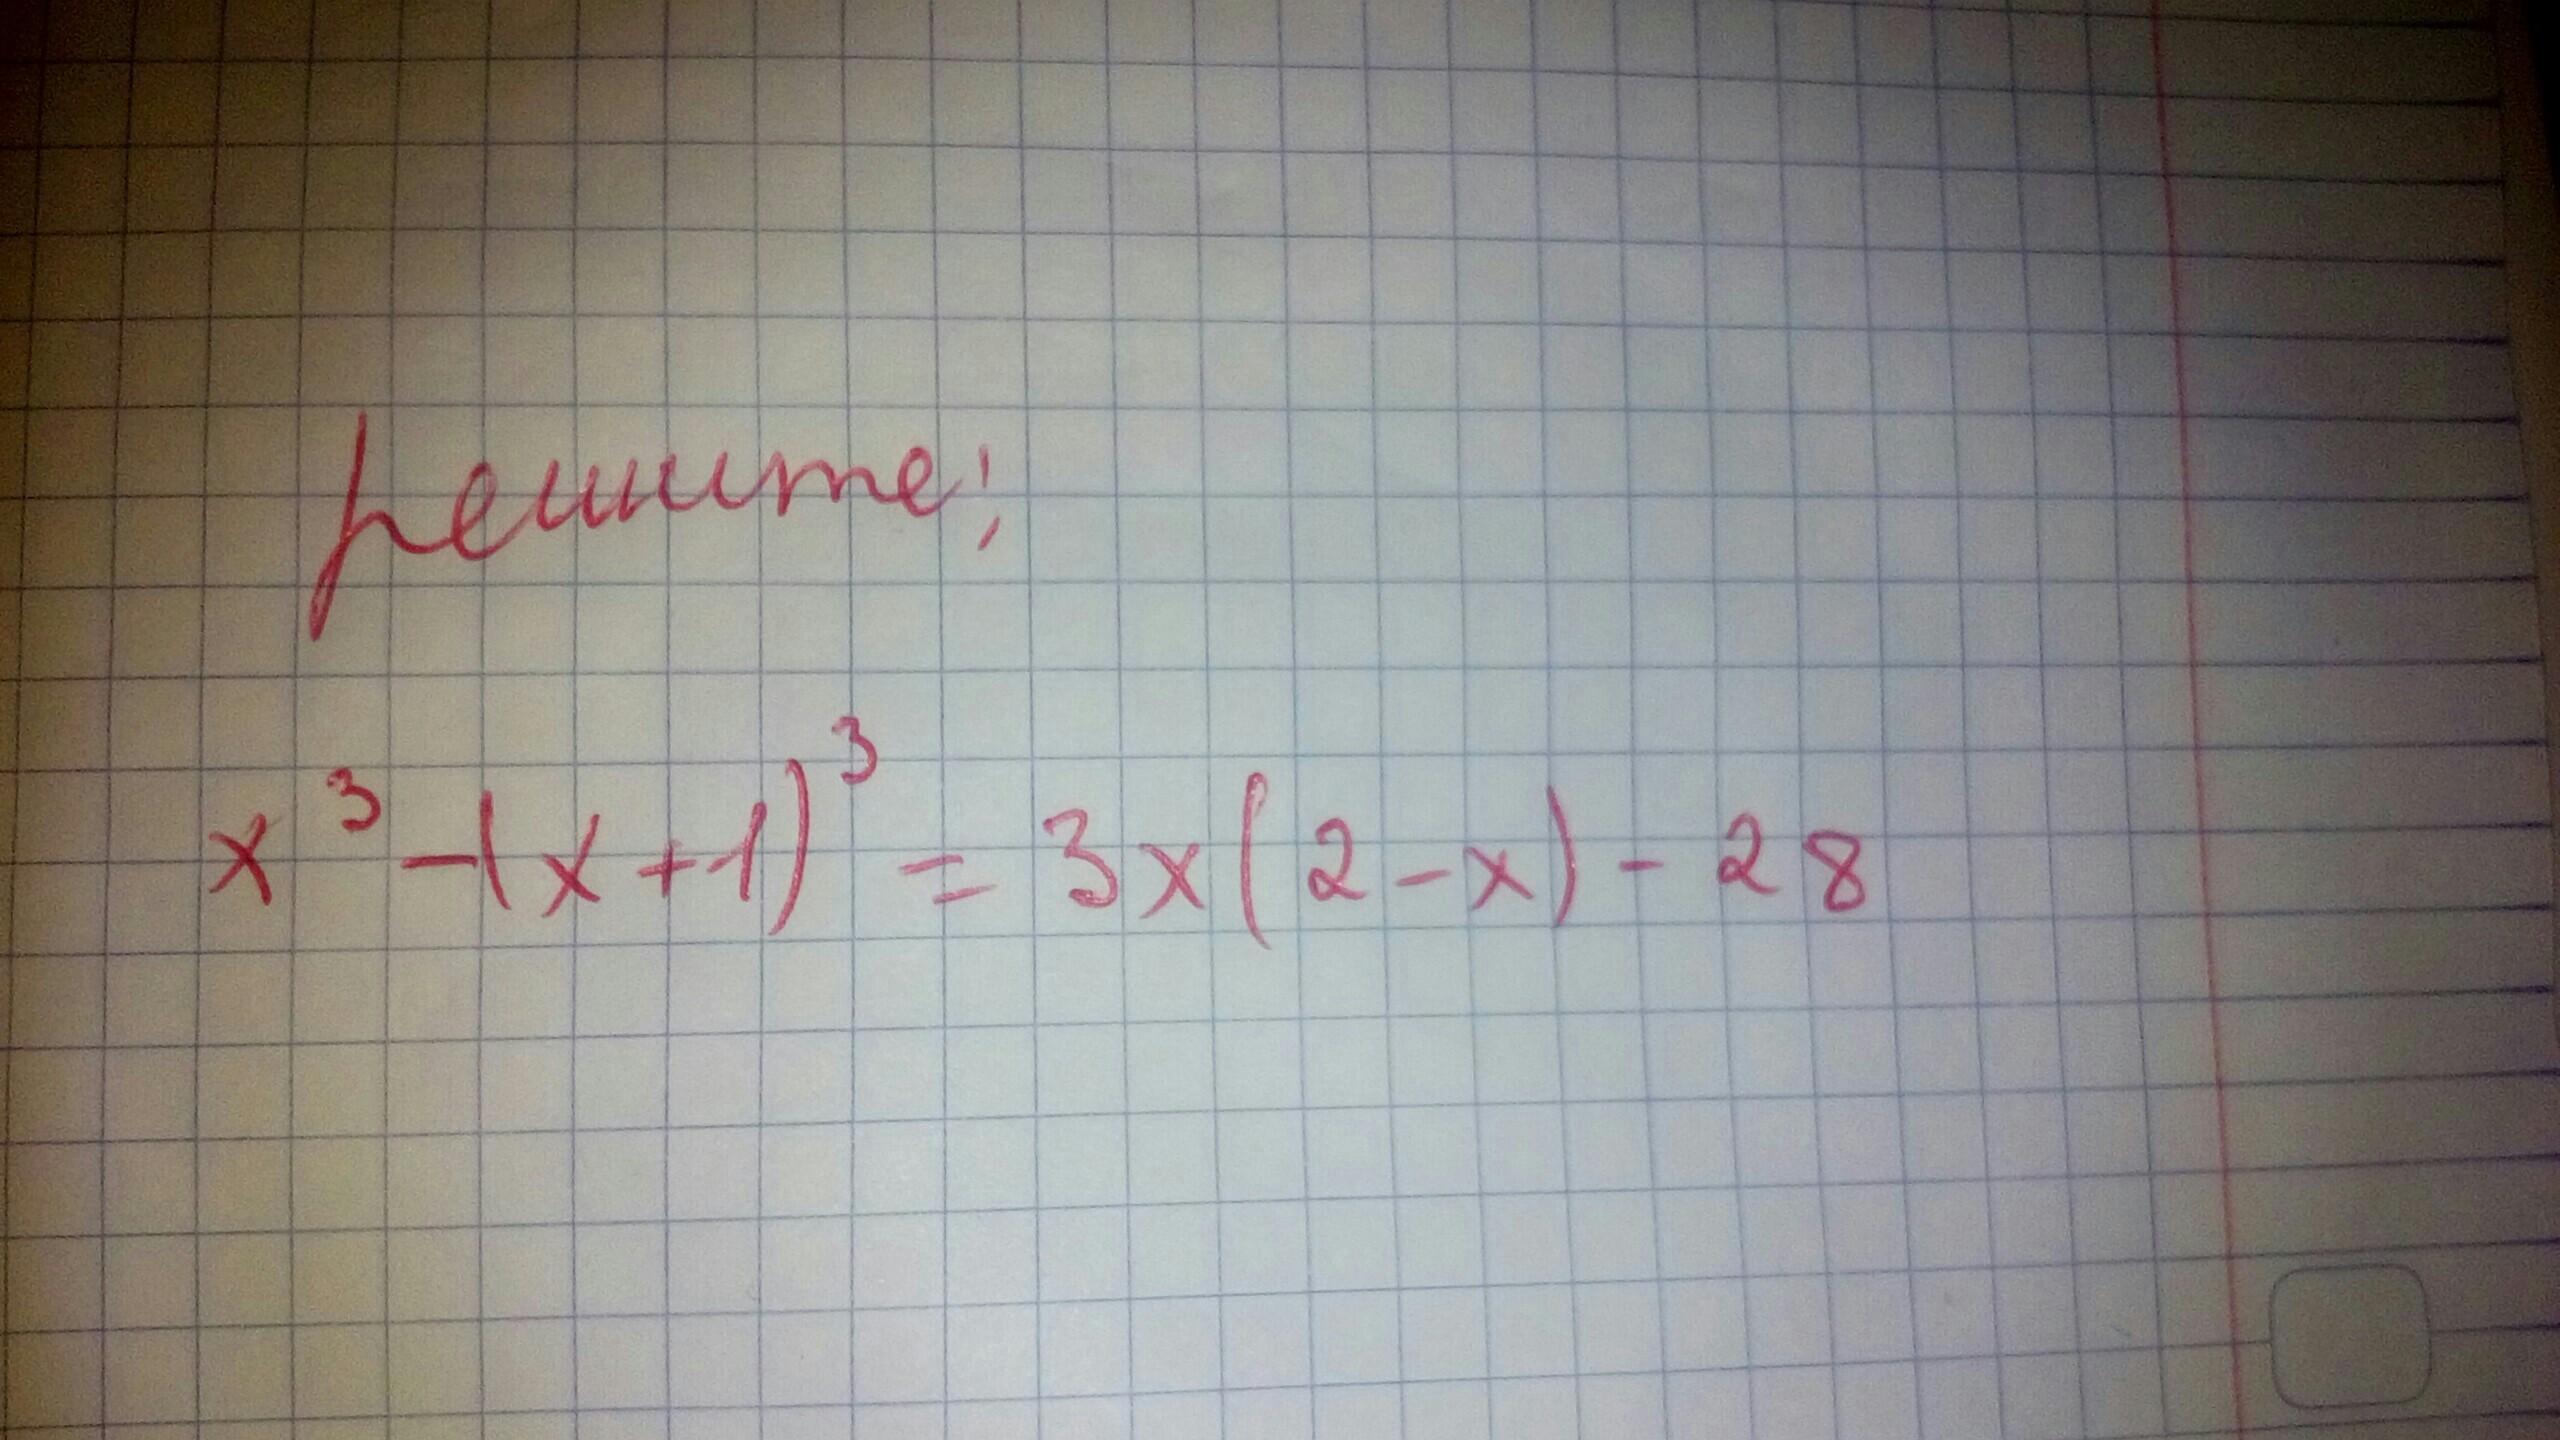 решите;
x³-(x+1)³=3x(2-x)-28